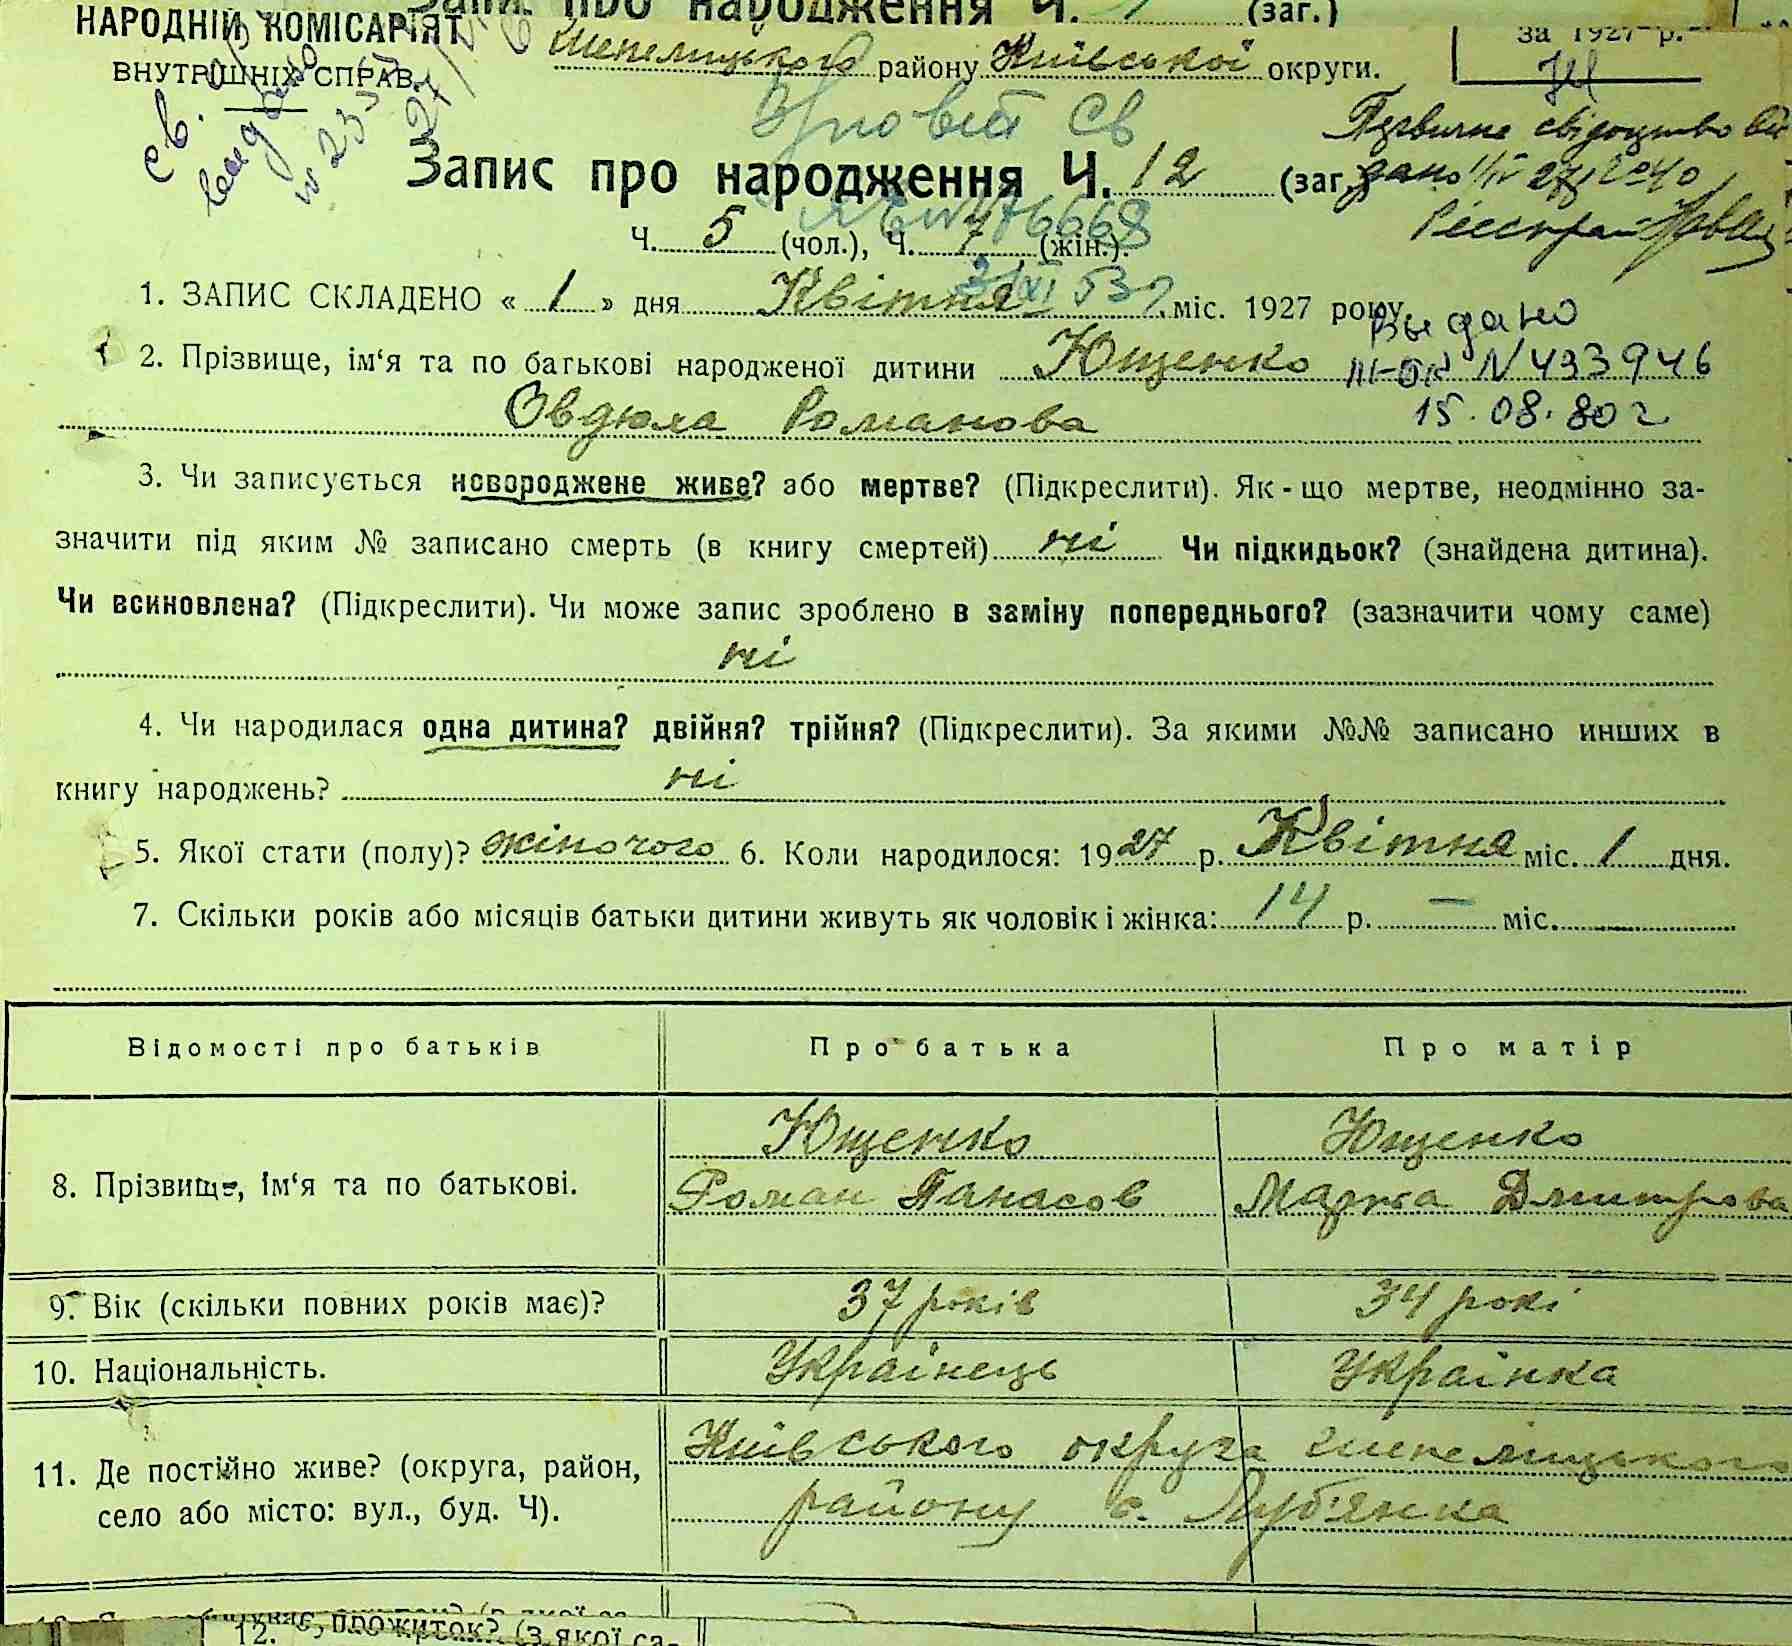 Запис про народження Ч. (заг.)
НАРОДНІЙ КОМІСАРІЯТ
ВНУТРІШНІХ СПРАВ.
за 1927 р.
Шепелицького району Київської округи.
Св.
видано
Повт Св
Первичне свідоцтво ви
дано
Запис про народження Ч. 12 (заг.)
Ч. 5 (чол.), Ч. 7 (жін.).
1. ЗАПИС СКЛАДЕНО « 1 » дня Квітня міс. 1927 року.
Выдано
2. Прізвище, ім‘я та по батькові народженої дитини Ющенко
III-ОК N 433946
Овдюха Романова
15.08.80 г
3. Чи записується новороджене живе? або мертве? (Підкреслити). Як-що мертве, неодмінно за-
значити під яким № записано смерть (в книгу смертей) ні Чи підкидьок? (знайдена дитина).
Чи всиновлена? (Підкреслити). Чи може запис зроблено в заміну попереднього? (зазначити чому саме)
ні
4. Чи народилася одна дитина? двійня? трійня? (Підкреслити). За якими №№ записано инших в
книгу народжень? ні
5. Якої стати (полу)? жіночого 6. Коли народилося: 1927 р. Квітня міс. 1 дня.
7. Скільки років або місяців батьки дитини живуть як чоловік і жінка: 14 р. — міс.
Відомості про батьків Про батька Про матір
8. Прізвище, ім‘я та по батькові. Ющенко Ющенко
Роман Панасов Марта Дмитрова
9. Вік (скільки повних років має)? 37 років 34 рокі
10. Національність. Українець Українка
11. Де постійно живе? (округа, район, село або місто: вул., буд. Ч). Київського округа Шепелицького
району с. Луб'янка
12. прожиток? (з якої са-